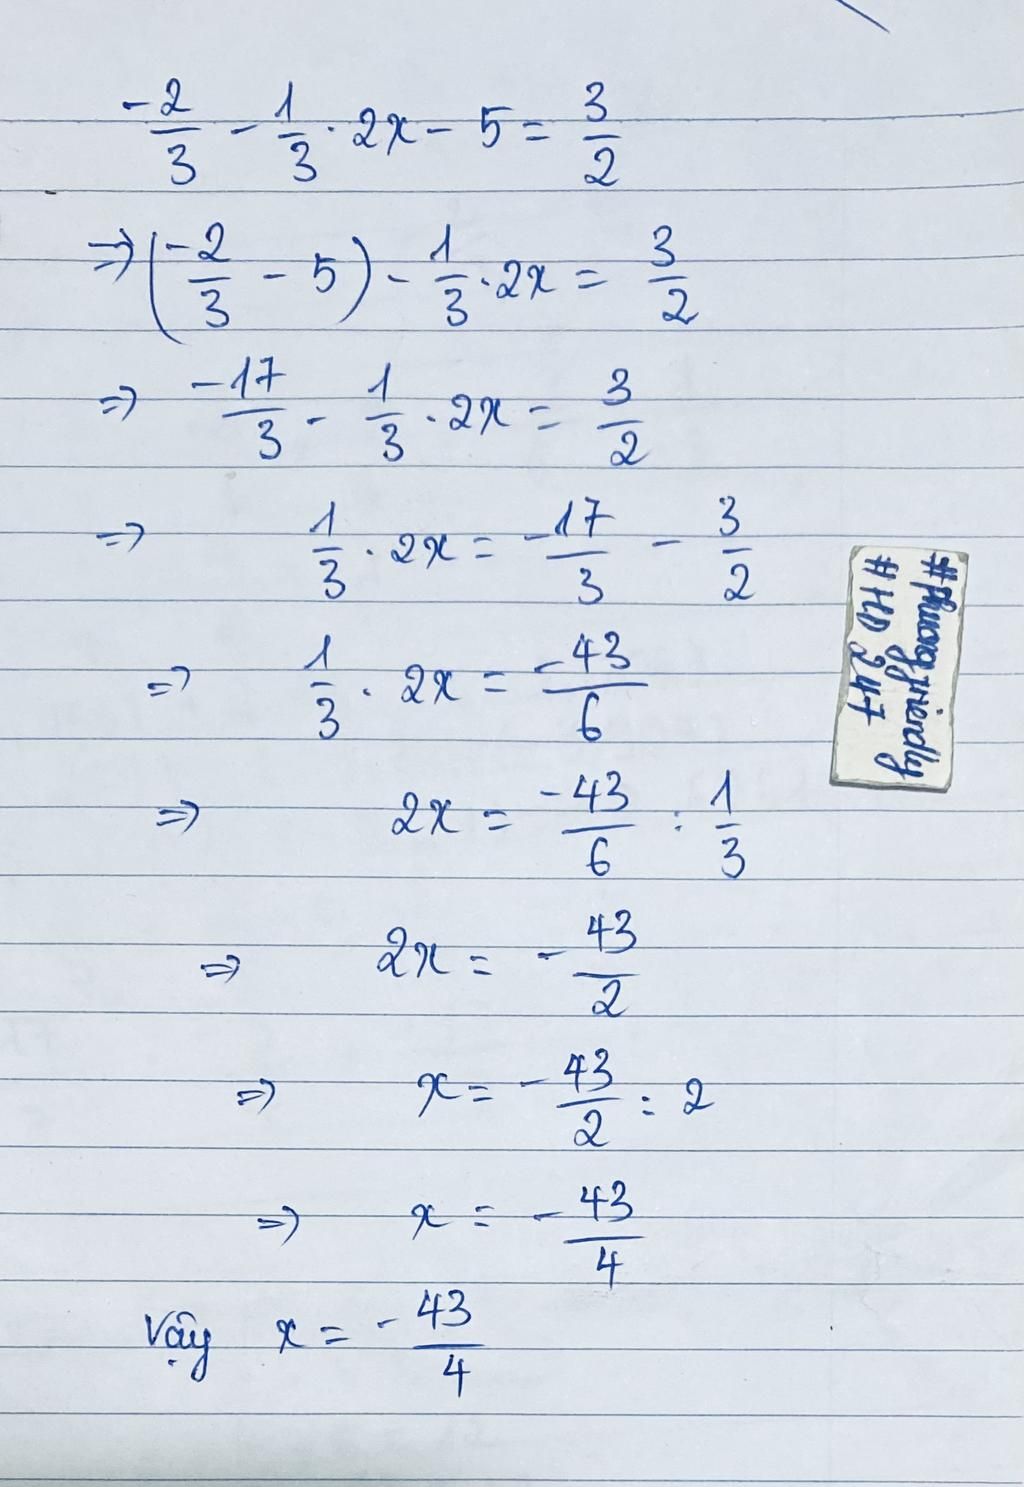 -2/3 - 1/3 . 2x - 5 = 3/2
=> (-2/3 - 5) - 1/3 . 2x = 3/2
=> -17/3 - 1/3 . 2x = 3/2
=> 1/3 . 2x = -17/3 - 3/2
=> 1/3 . 2x = -43/6
=> 2x = -43/6 : 1/3
=> 2x = -43/2
=> x = -43/2 : 2
=> x = -43/4
Vậy x = -43/4
#phuongfriendly
#HD 247